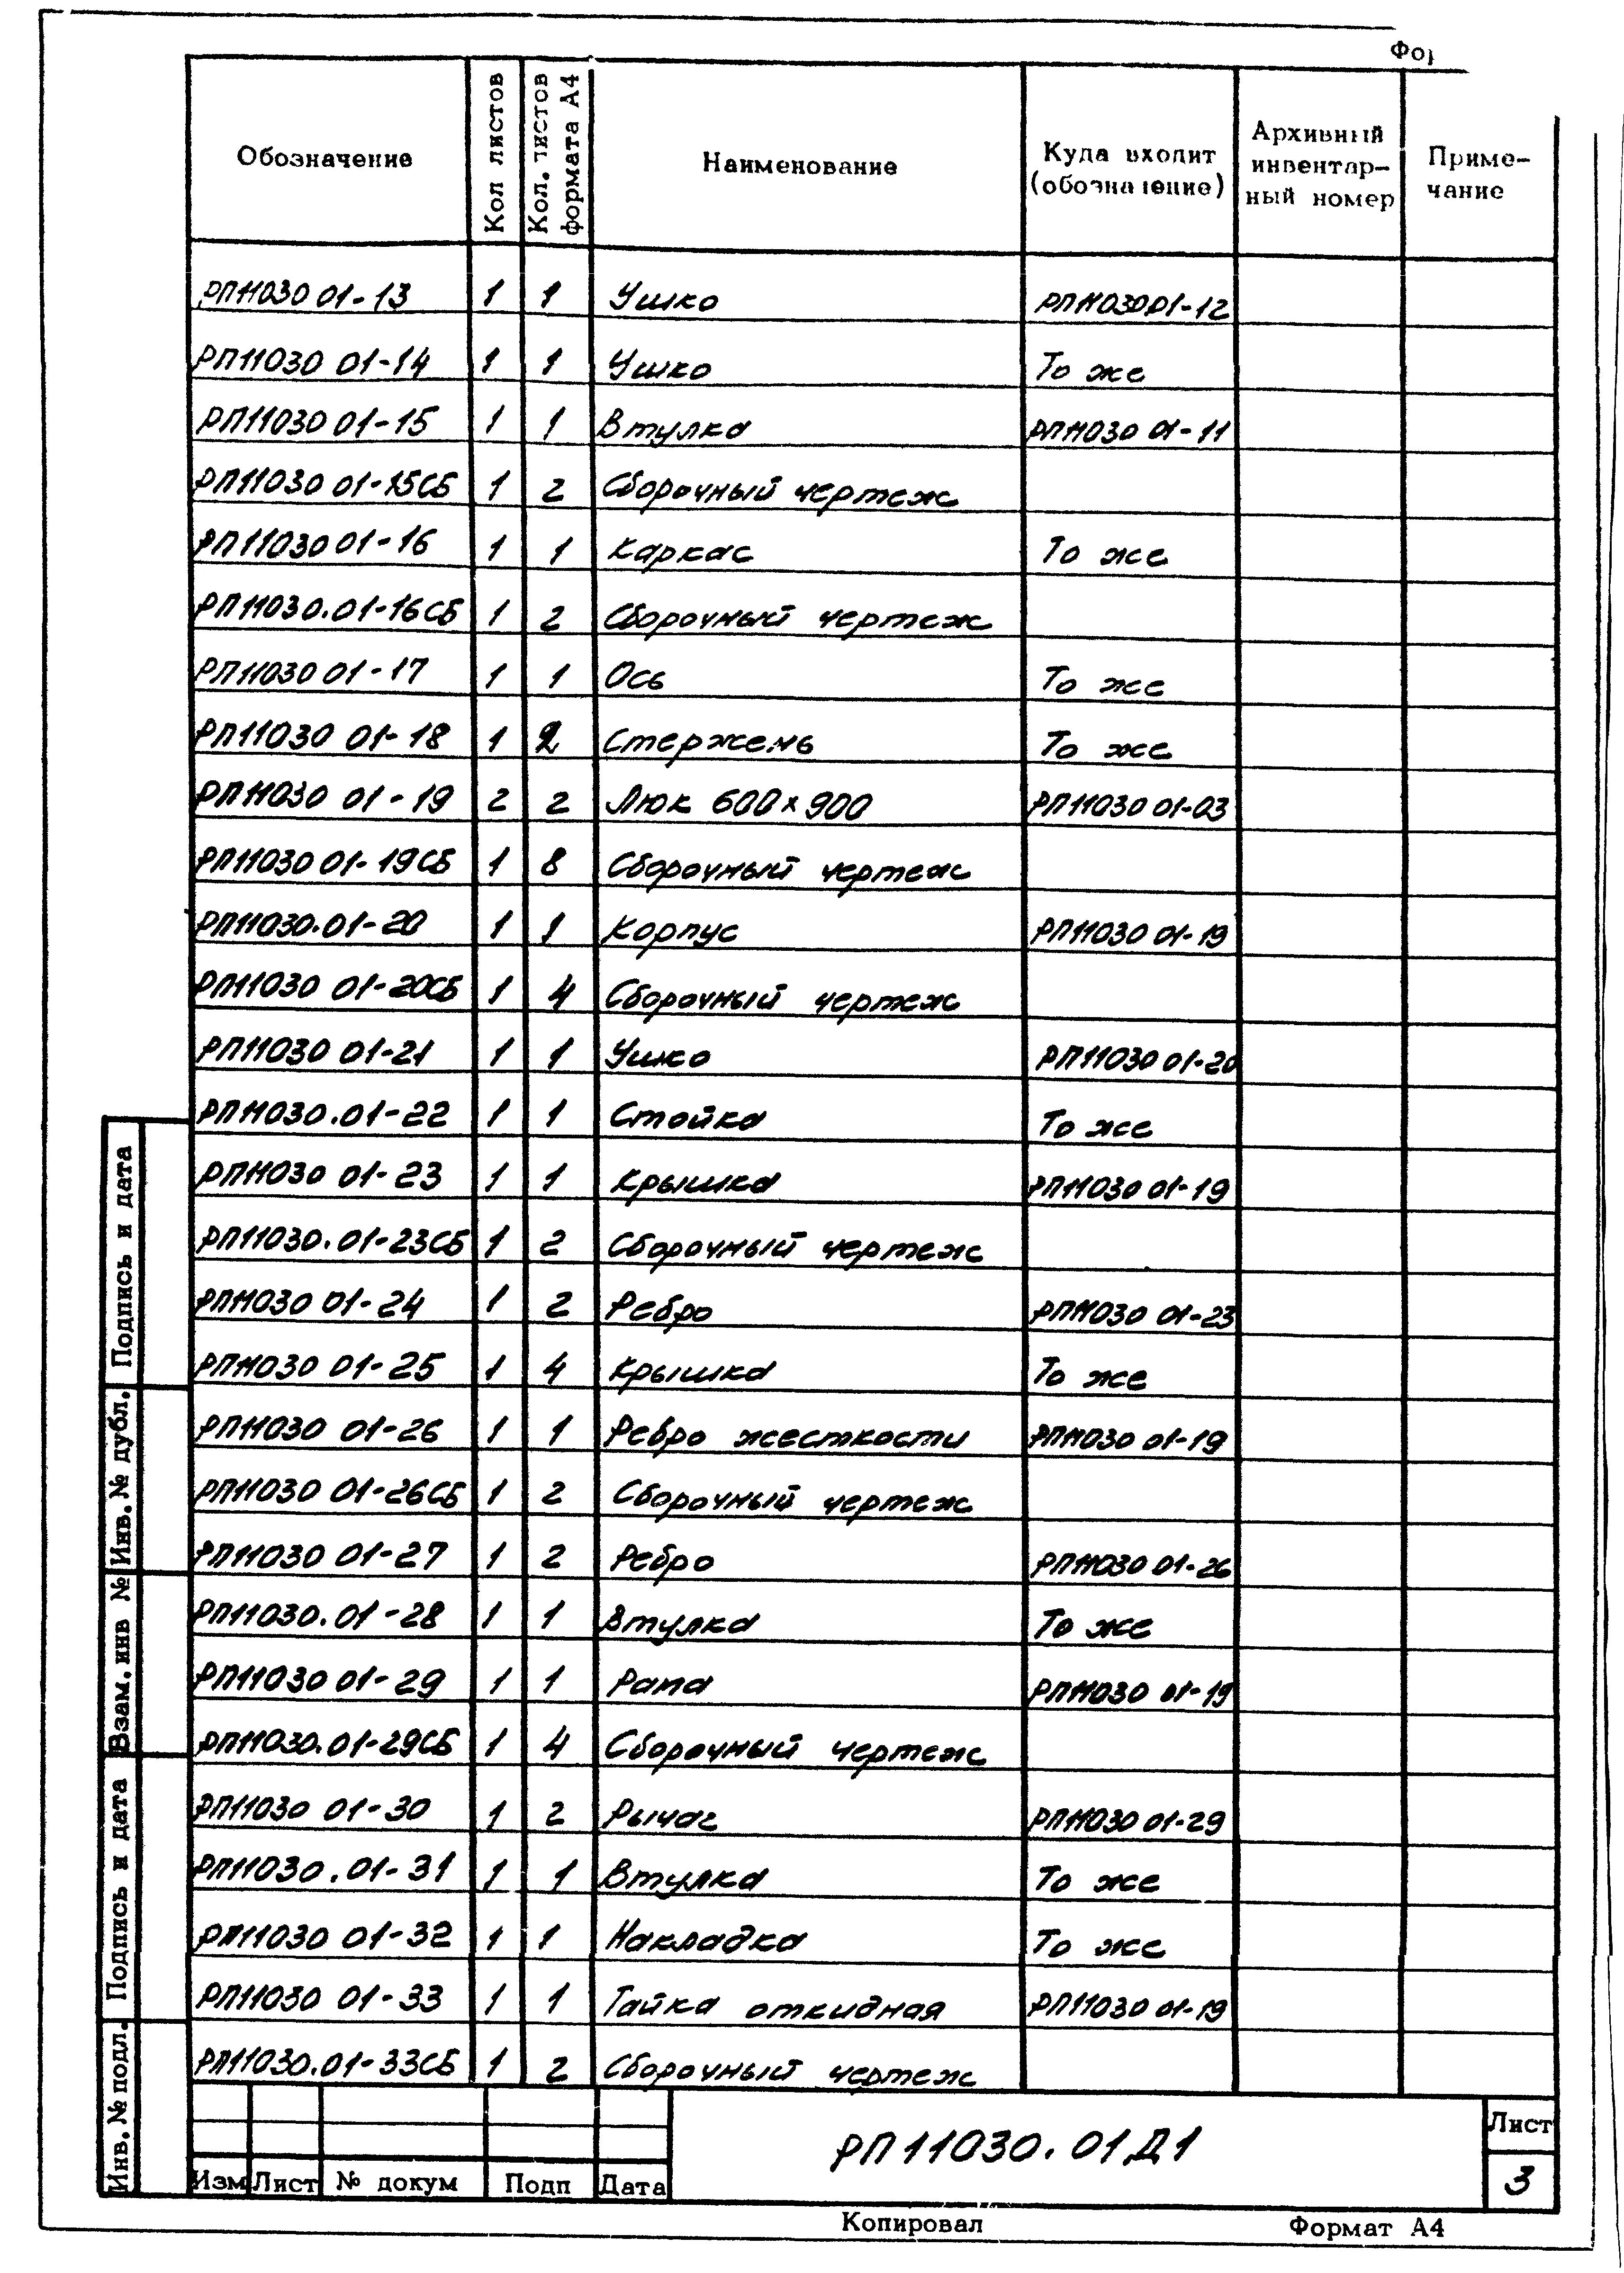 Фор
Обозначение Кол листов Кол. листов формата А4 Наименование Куда входит (обозначение) Архивный инвентар-ный номер Приме-чание
РП11030 01-13 1 1 Ушко РП11030 01-12
РП11030 01-14 1 1 Ушко То же
РП11030 01-15 1 1 Втулка РП11030 01-11
РП11030 01-15СБ 1 2 Сборочный чертеж
РП11030 01-16 1 1 Каркас То же
РП11030.01-16СБ 1 2 Сборочный чертеж
РП11030 01-17 1 1 Ось То же
РП11030 01-18 1 2 Стержень То же
РП11030 01-19 2 2 Люк 600×900 РП11030 01-03
РП11030 01-19СБ 1 8 Сборочный чертеж
РП11030.01-20 1 1 Корпус РП11030 01-19
РП11030 01-20СБ 1 4 Сборочный чертеж
РП11030 01-21 1 1 Ушко РП11030 01-20
РП11030.01-22 1 1 Стойка То же
РП11030 01-23 1 1 Крышка РП11030 01-19
РП11030.01-23СБ 1 2 Сборочный чертеж
РП11030 01-24 1 2 Ребро РП11030 01-23
РП11030 01-25 1 4 Крышка То же
РП11030 01-26 1 1 Ребро жесткости РП11030 01-19
РП11030 01-26СБ 1 2 Сборочный чертеж
РП11030 01-27 1 2 Ребро РП11030 01-26
РП11030.01-28 1 1 Втулка То же
РП11030 01-29 1 1 Рама РП11030 01-19
РП11030.01-29СБ 1 4 Сборочный чертеж
РП11030 01-30 1 2 Рычаг РП11030 01-29
РП11030.01-31 1 1 Втулка То же
РП11030 01-32 1 1 Накладка То же
РП11030 01-33 1 1 Гайка откидная РП11030 01-19
РП11030.01-33СБ 1 2 Сборочный чертеж
Подпись и дата
Инв. № дубл.
Взам. инв №
Подпись и дата
Инв. № подл.
Изм Лист № докум Подп Дата
РП11030.01Д1
Лист
3
Копировал Формат А4